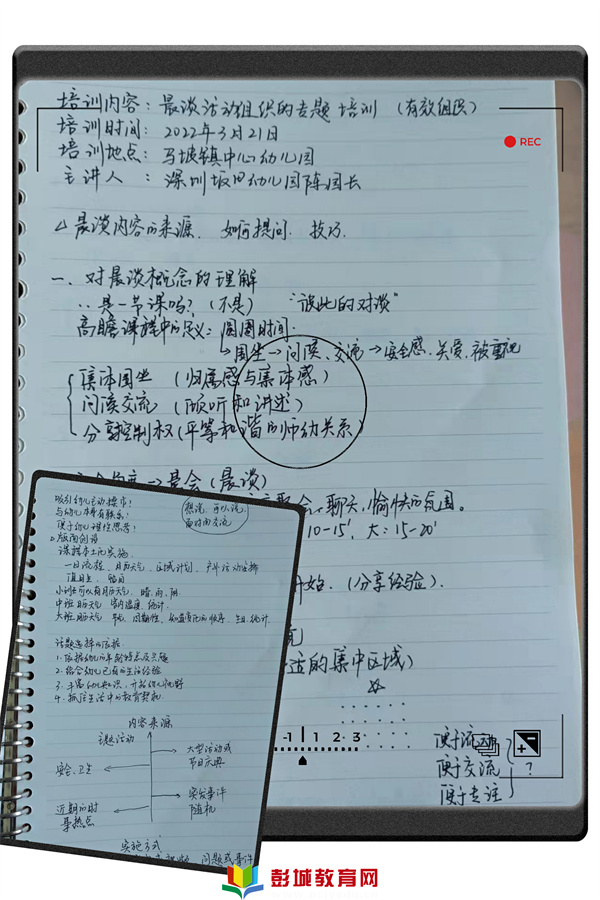 培训内容：晨谈活动组织的专题培训（有效组织）
培训时间：2022年3月21日
培训地点：马坡镇中心幼儿园
主讲人：深圳坂田幼儿园陈园长
REC
晨谈内容的来源．如何提问．技巧．
一、对晨谈概念的理解
是一节课吗？（不是） “彼此的对谈”
高瞻课程中的定义：圆圈时间．
围坐→问候、交流→安全感．关爱．被重视
集体围坐（归属感与集体感）
问候交流（倾听和讲述）
分享控制权（平等和谐的师幼关系）
→晨会（晨谈）
聊天，愉快的氛围。
10-15′，大：15-20′
开始．（分享经验）．
适的集中区域）
-1 1 2·3
便于流动
便于交流 ？
便于专注
吸引幼儿主动操作？
与幼儿本身有联系？
便于幼儿理性思考？
想说．可以说．
面对面交流
版面创设
课程本土化实施．
一日流程、月历天气、区域计划、户外活动安排
值日生、签到
小班可以有月历天气 晴．雨．阴．
中班月历天气 室内温度．统计．
话题选择的依据
1．依据幼儿的年龄特点及兴趣
2．结合幼儿已有的生活经验
3．丰富幼儿知识，开拓幼儿视野
4．抓住生活中的教育契机
内容来源
主题活动
大型活动或
节日庆典
安全、卫生
突发事件
随机
近期的时
事热点
实施方式
问题或事件
彭城教育网